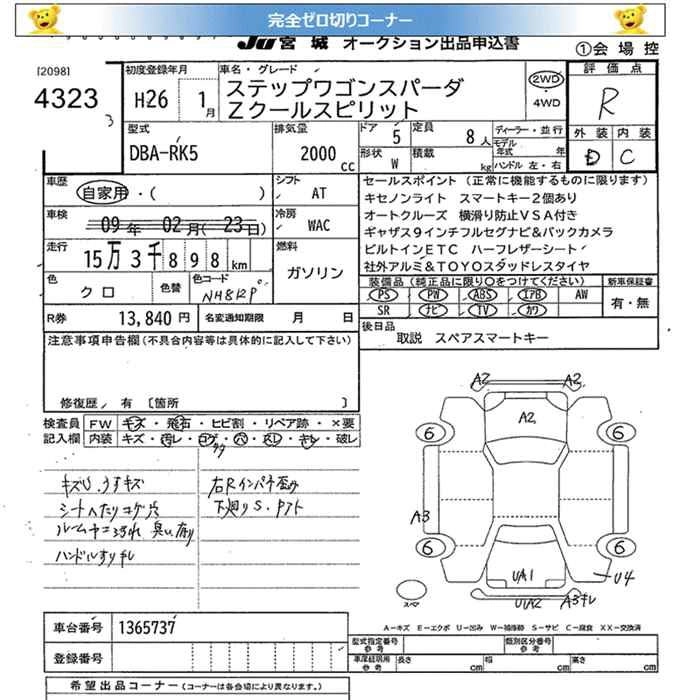 完全ゼロ切りコーナー
JU 宮城 オークション出品申込書
①会場控
[2098]
4323
3
初度登録年月
H26 1月
車名・グレード
ステップワゴンスパーダ
Zクールスピリット
2WD
・4WD
評価点
R
外装 内装
D C
型式
DBA-RK5
排気量
2000 cc
ドア 5
定員 8人
形状 W
積載 kg
ディーラー・並行
モデル年式 年
ハンドル 左・右
車歴
自家用・( )
シフト AT
車検
09年 02月(23日)
冷房 WAC
走行
15万3千898km
燃料
ガソリン
色 クロ
色替
色コード NH812P
R券 13,840円
名変通知期限 月 日
セールスポイント(正常に機能するものに限ります)
キセノンライト スマートキー2個あり
オートクルーズ 横滑り防止VSA付き
ギャザズ9インチフルセグナビ&バックカメラ
ビルトインETC ハーフレザーシート
社外アルミ&TOYOスタッドレスタイヤ
装備品(純正品に限り○をつけてください)
新車保証書
PS PW ABS エアB AW
有・無
SR ナビ TV カワ
後日品
取説 スペアスマートキー
注意事項申告欄(不具合内容等は具体的に記入して下さい)
修復歴, 有 〔箇所 〕
検査員記入欄
FW キズ・飛石・ヒビ割・リペア跡・×要
内装 キズ・汚レ・コゲ・穴・スレ・キレ・破レ
キズU.うすキズ
シートへたりコゲ穴
ルームヤニ汚れ 臭い有り
ハンドルすりキレ
右Rインパネ歪み
下廻りS.
A2 A2
A2
6 6
A3
6 6
UA1
U4
UA2 A3キレ
スペア
A-キズ E-エクボ U-凹み W-補修跡 S-サビ C-腐食 XX-交換済
車台番号 1365737
登録番号
型式指定番号 参考
類別区分番号 参考
車庫証明用 参考 長さ cm 幅 cm 高さ cm
希望出品コーナー(コーナーは各会場により異なります。)